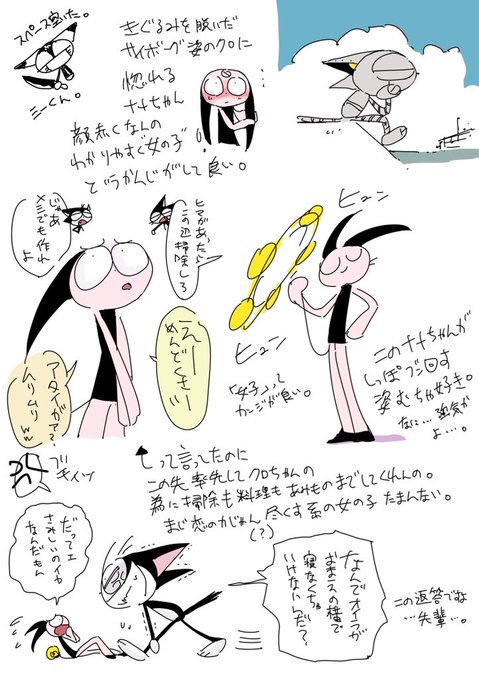 スペース空いた。
ミーくん。
きぐるみを脱いだ
サイボーグ姿のクロに
惚れる
ナナちゃん
顔赤くなんの
わかりやすぐ女の子”
どうかんじがして良い。
じゃあ
メシでも作れ
よ
ヒマがあったら
この辺掃除しろ
えー
めんどくさい
アタイがァ?
ムリムリww
ブキイッ
ヒュン
ヒュン
「女子」って
カンジが良い。
このナナちゃんが
しっぽブン回す
姿むちゃ好き。
なに…強気が
よ…。
って言ってたのに
この先率先してクロちゃんの
為に掃除も料理もあみものまでしてくれんの。
まじ恋のかじょん尽くす系の女の子たまんない。
(?)
だってェ
さみしいのイヤ
なんだもん
なんでオイラが
おまえの横で
寝なくちゃ
いけないんだ?
この返答でね
…先輩…。